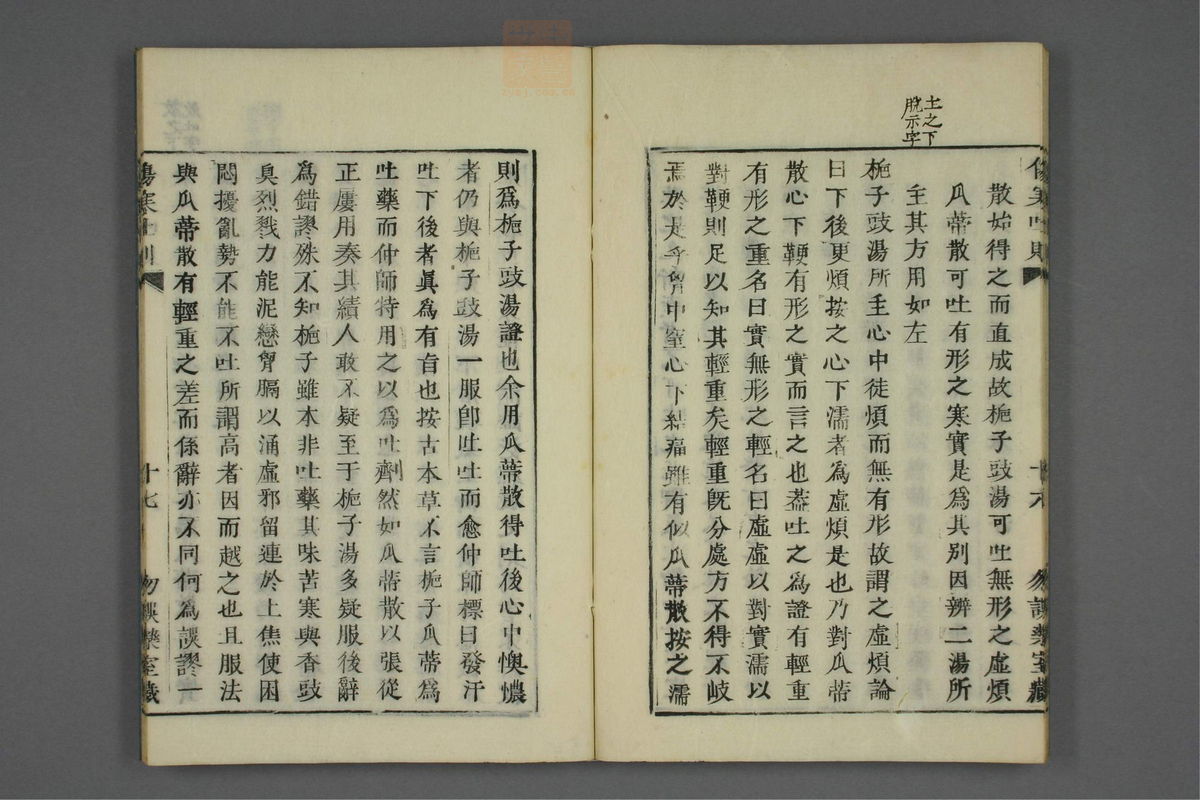 土之下
脫示字
傷寒吐則　十六　勿誤藥室藏
散始得之而直成故梔子豉湯可吐無形之虛煩
瓜蒂散可吐有形之寒實是爲其別因辨二湯所
主其方用如左
梔子豉湯所主心中徒煩而無有形故謂之虛煩論
曰下後更煩按之心下濡者爲虛煩是也乃對瓜蒂
散心下鞕有形之實而言之也蓋吐之爲證有輕重
有形之重名曰實無形之輕名曰虛虛以對實濡以
對鞕則足以知其輕重矣輕重旣分處方不得不岐
焉於是乎胷中窒心下結痛雖有似瓜蒂散按之濡
則爲梔子豉湯證也余用瓜蒂散得吐後心中懊憹
者仍與梔子豉湯一服卽吐吐而愈仲師標曰發汗
吐下後者眞爲有旨也按古本草不言梔子瓜蒂爲
吐藥而仲師特用之以爲吐劑然如瓜蒂散以張從
正屢用奏其績人敢不疑至于梔子湯多疑服後辭
爲錯謬殊不知梔子雖本非吐藥其味苦寒與香豉
臭烈戮力能泥戀胷膈以涌虛邪留連於上焦使困
悶擾亂勢不能不吐所謂高者因而越之也且服法
與瓜蒂散有輕重之差而係辭亦不同何爲誤謬一
傷寒吐則　十七　勿誤藥室藏